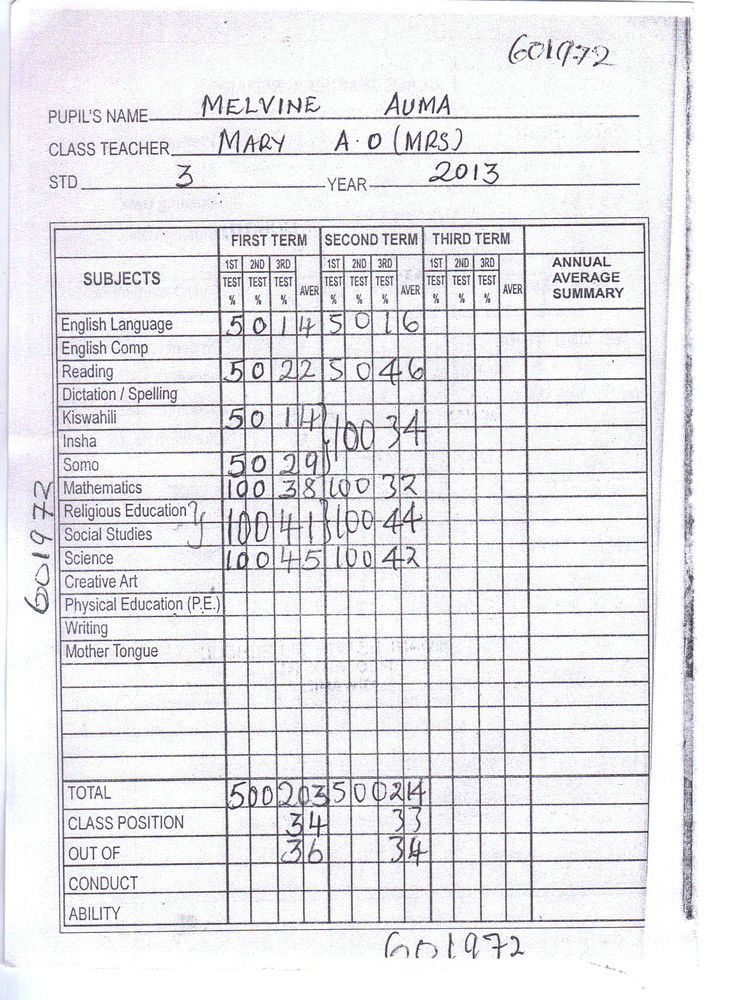 601972
PUPIL'S NAME MELVINE AUMA
CLASS TEACHER MARY A.O (MRS)
STD 3 YEAR 2013
SUBJECTS FIRST TERM SECOND TERM THIRD TERM ANNUAL AVERAGE SUMMARY
1ST TEST % 2ND TEST % 3RD TEST % AVER 1ST TEST % 2ND TEST % 3RD TEST % AVER 1ST TEST % 2ND TEST % 3RD TEST % AVER
English Language 50 14 50 16
English Comp
Reading 50 22 50 46
Dictation / Spelling
Kiswahili 50 14 100 34
Insha
Somo 50 29
Mathematics 100 38 100 32
Religious Education
Social Studies 100 41 100 44
Science 100 45 100 42
Creative Art
Physical Education (P.E.)
Writing
Mother Tongue
TOTAL 500 203 500 214
CLASS POSITION 34 33
OUT OF 36 34
CONDUCT
ABILITY
601972
601972